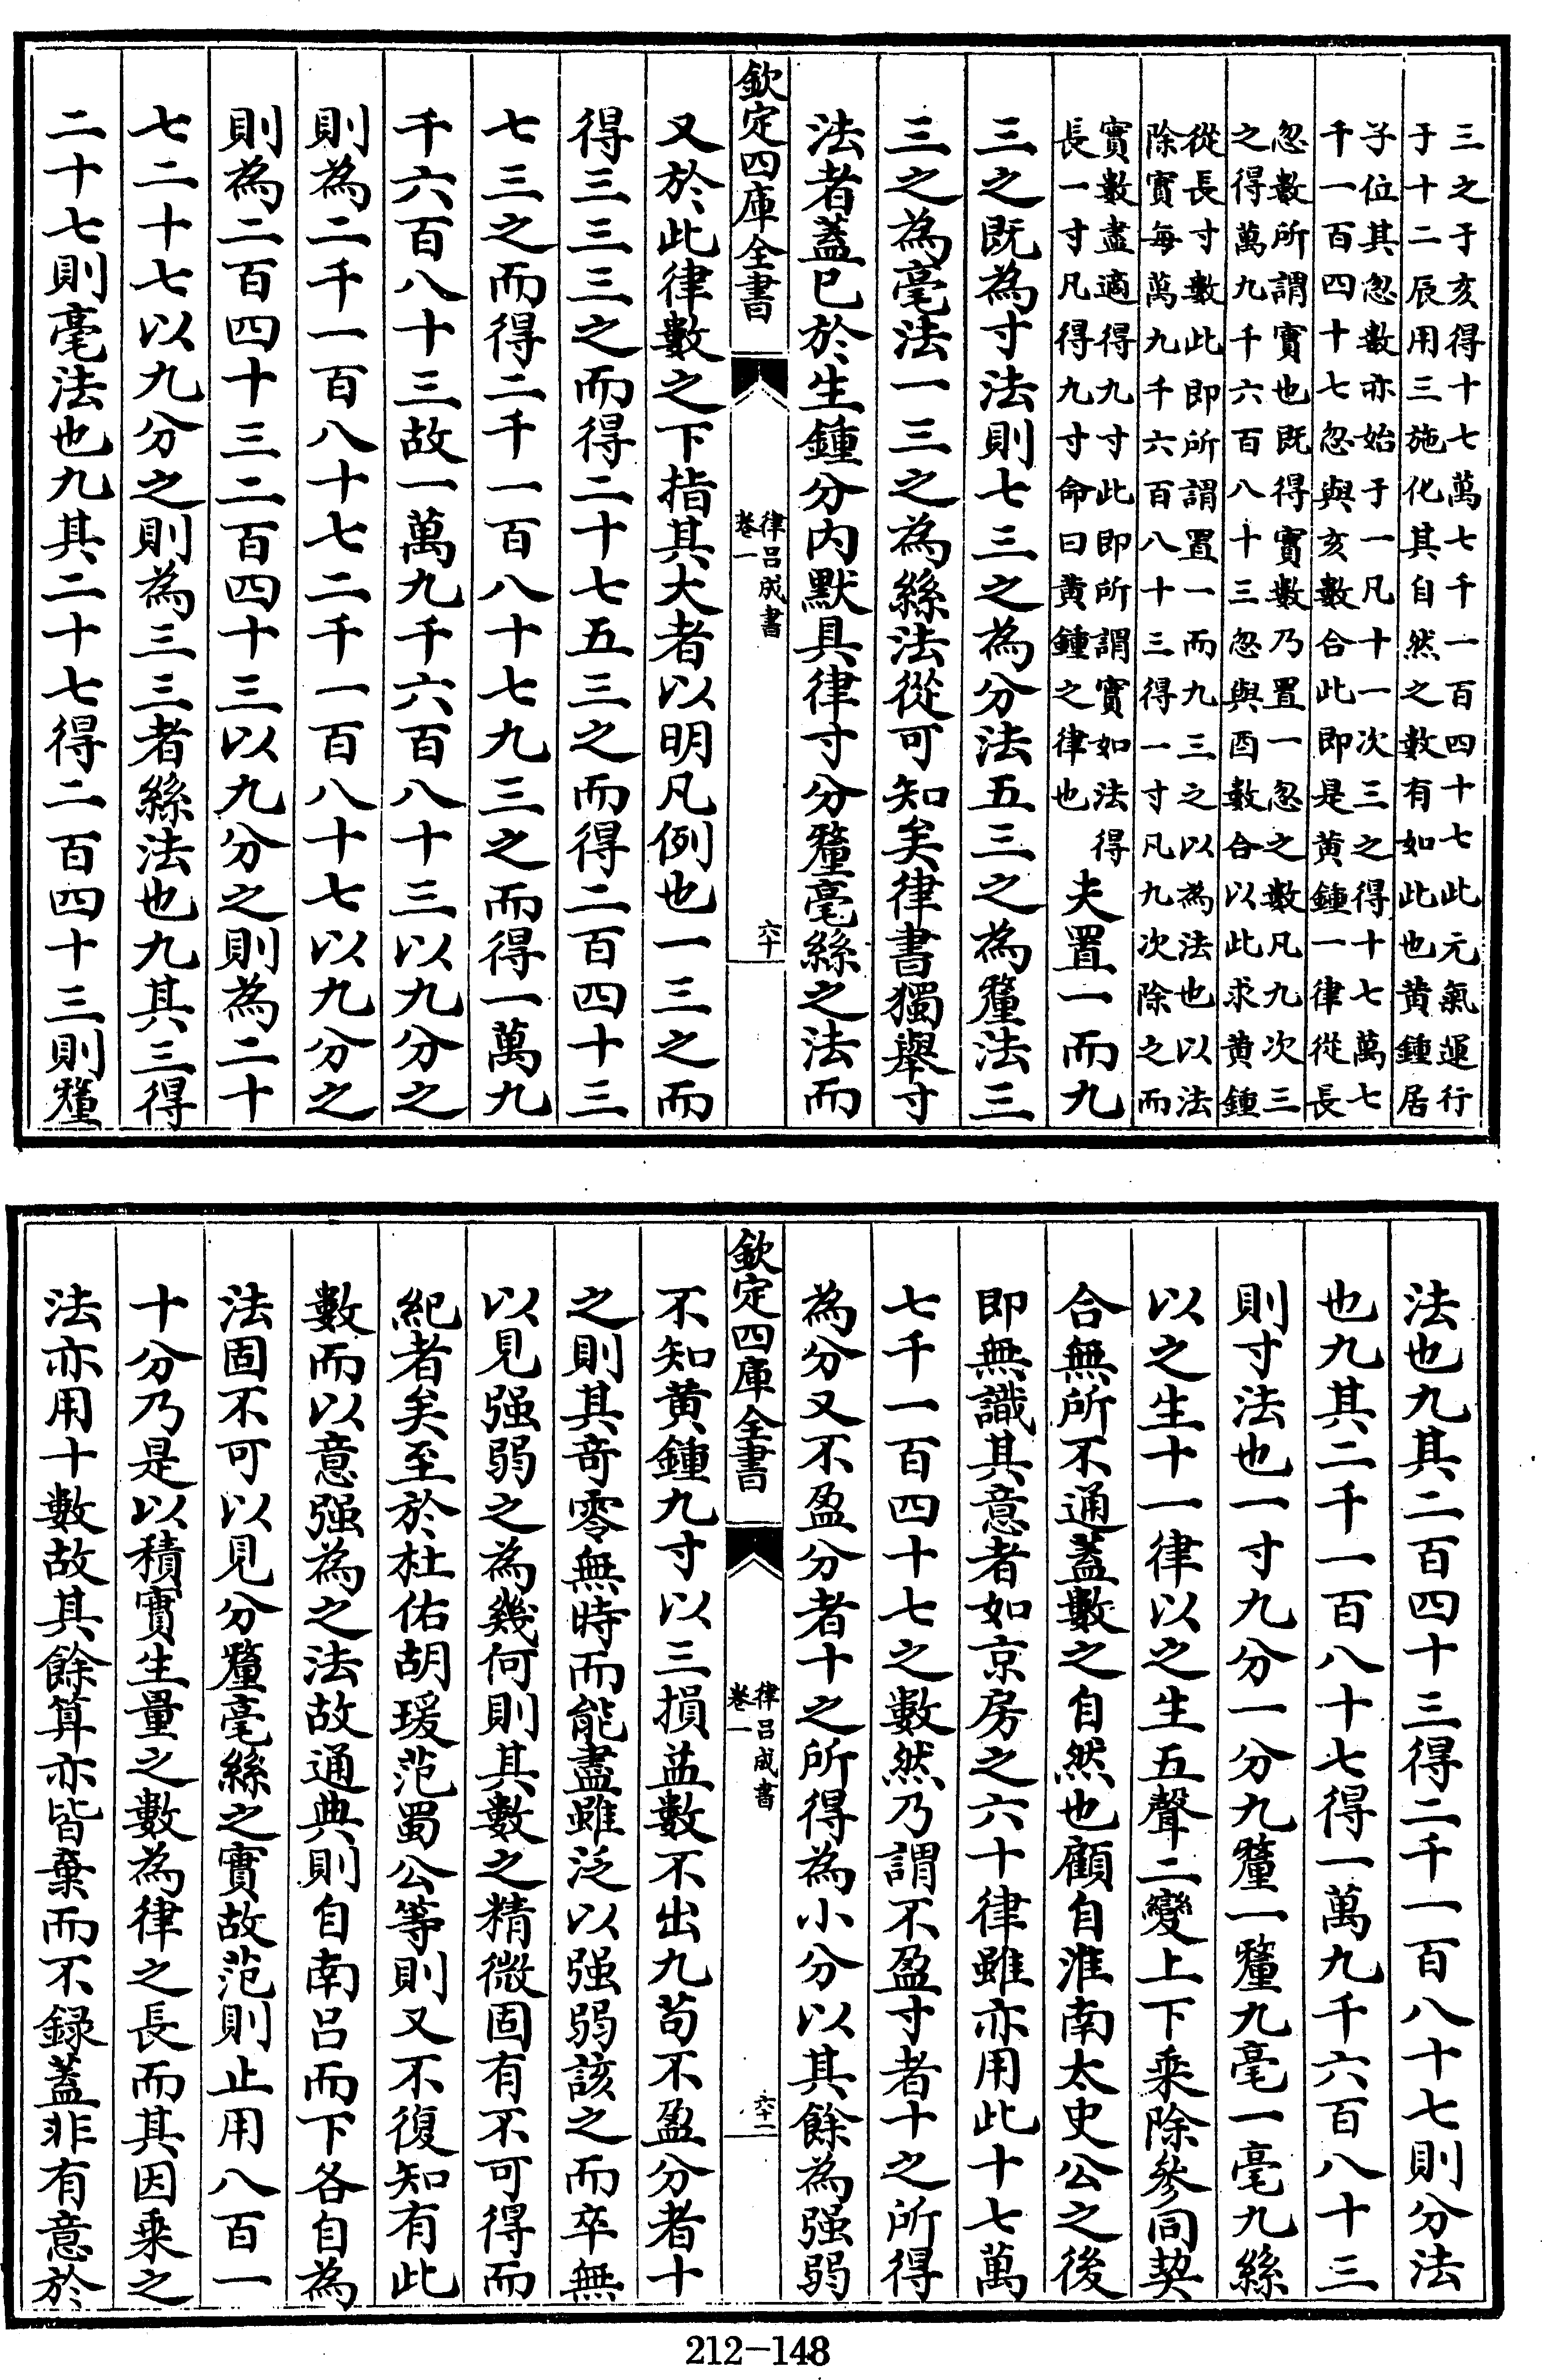 三之于亥得十七萬七千一百四十七此元氣運行
于十二辰用三施化其自然之數有如此也黄鍾居
子位其忽數亦始于一凡十一次三之得十七萬七
千一百四十七忽與亥數合此即是黄鍾一律從長
忽數所謂實也既得實數乃置一忽之數凡九次三
之得萬九千六百八十三忽與酉數合以此求黄鍾
從長寸數此即所謂置一而九三之以為法也以法
除實每萬九千六百八十三得一寸凡九次除之而
實數盡適得九寸此即所謂實如法得
長一寸凡得九寸命曰黄鍾之律也
夫置一而九
三之既為寸法則七三之為分法五三之為釐法三
三之為毫法一三之為絲法從可知矣律書獨舉寸
法者蓋已於生鍾分内默具律寸分釐毫絲之法而
欽定四庫全書
律吕成書
卷一
六十
又於此律數之下指其大者以明凡例也一三之而
得三三三之而得二十七五三之而得二百四十三
七三之而得二千一百八十七九三之而得一萬九
千六百八十三故一萬九千六百八十三以九分之
則為二千一百八十七二千一百八十七以九分之
則為二百四十三二百四十三以九分之則為二十
七二十七以九分之則為三三者絲法也九其三得
二十七則毫法也九其二十七得二百四十三則釐
法也九其二百四十三得二千一百八十七則分法
也九其二千一百八十七得一萬九千六百八十三
則寸法也一寸九分一分九釐一釐九毫一毫九絲
以之生十一律以之生五聲二變上下乘除參同契
合無所不通蓋數之自然也顧自淮南太史公之後
即無識其意者如京房之六十律雖亦用此十七萬
七千一百四十七之數然乃謂不盈寸者十之所得
為分又不盈分者十之所得為小分以其餘為强弱
欽定四庫全書
律吕成書
卷一
六十一
不知黄鍾九寸以三損益數不出九苟不盈分者十
之則其奇零無時而能盡雖泛以强弱該之而卒無
以見强弱之為幾何則其數之精微固有不可得而
紀者矣至於杜佑胡瑗范蜀公等則又不復知有此
數而以意强為之法故通典則自南吕而下各自為
法固不可以見分釐毫絲之實故范則止用八百一
十分乃是以積實生量之數為律之長而其因乘之
法亦用十數故其餘算亦皆棄而不録蓋非有意於
212-148